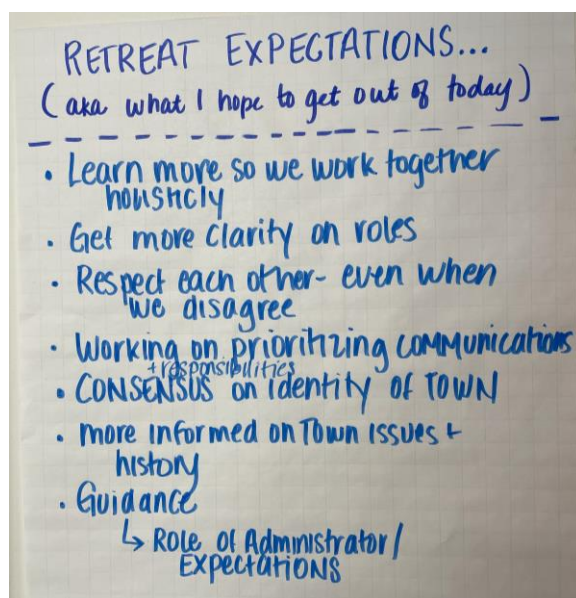 RETREAT EXPECTATIONS...
(aka what I hope to get out of today)
• Learn more so we work together
housticly
• Get more clarity on roles
• Respect each other- even when
we disagree
• Working on prioritizing communications
+responsibilities
• CONSENSUS on identity of TOWN
• more informed on Town Issues +
history
• Guidance
↳ Role of Administrator/
Expectations